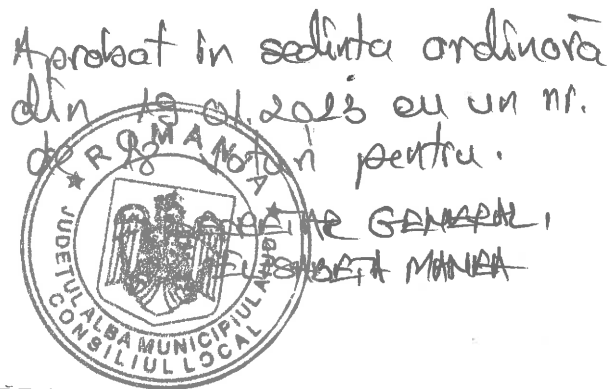 Aprobat în sedinta ordinară
din 19.01.2023 cu un nr.
de 18 voturi pentru.
SECRETAR GENERAL,
ELISABETA MANEA
ROMANIA
JUDETUL ALBA MUNICIPIUL
CONSILIUL LOCAL